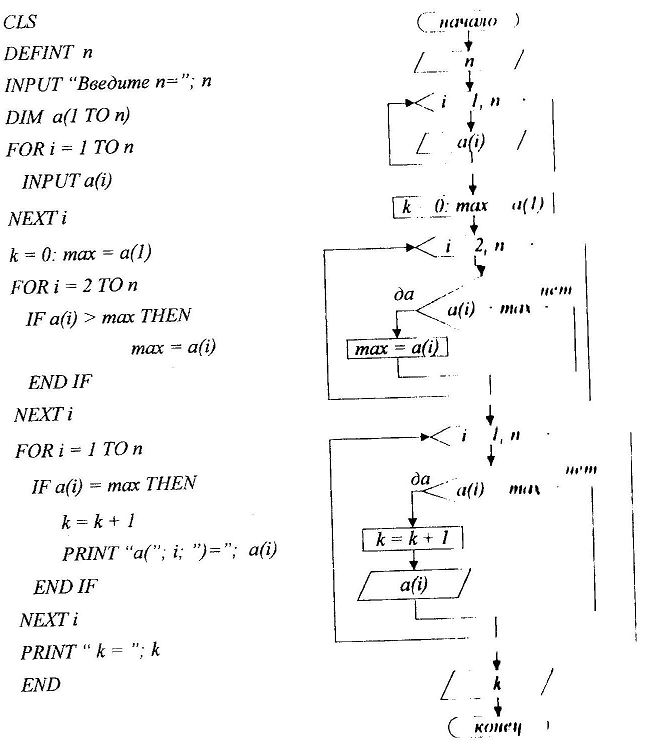 CLS
DEFINT n
INPUT “Введите n=”; n
DIM a(1 TO n)
FOR i = 1 TO n
INPUT a(i)
NEXT i
k = 0: max = a(1)
FOR i = 2 TO n
IF a(i) > max THEN
max = a(i)
END IF
NEXT i
FOR i = 1 TO n
IF a(i) = max THEN
k = k + 1
PRINT “a(”; i; ”)=”; a(i)
END IF
NEXT i
PRINT “ k = ”; k
END
начало
n
i 1, n
a(i)
k 0: max a(1)
i 2, n
да нет
a(i) max
max = a(i)
i 1, n
да нет
a(i) max
k = k + 1
a(i)
k
конец